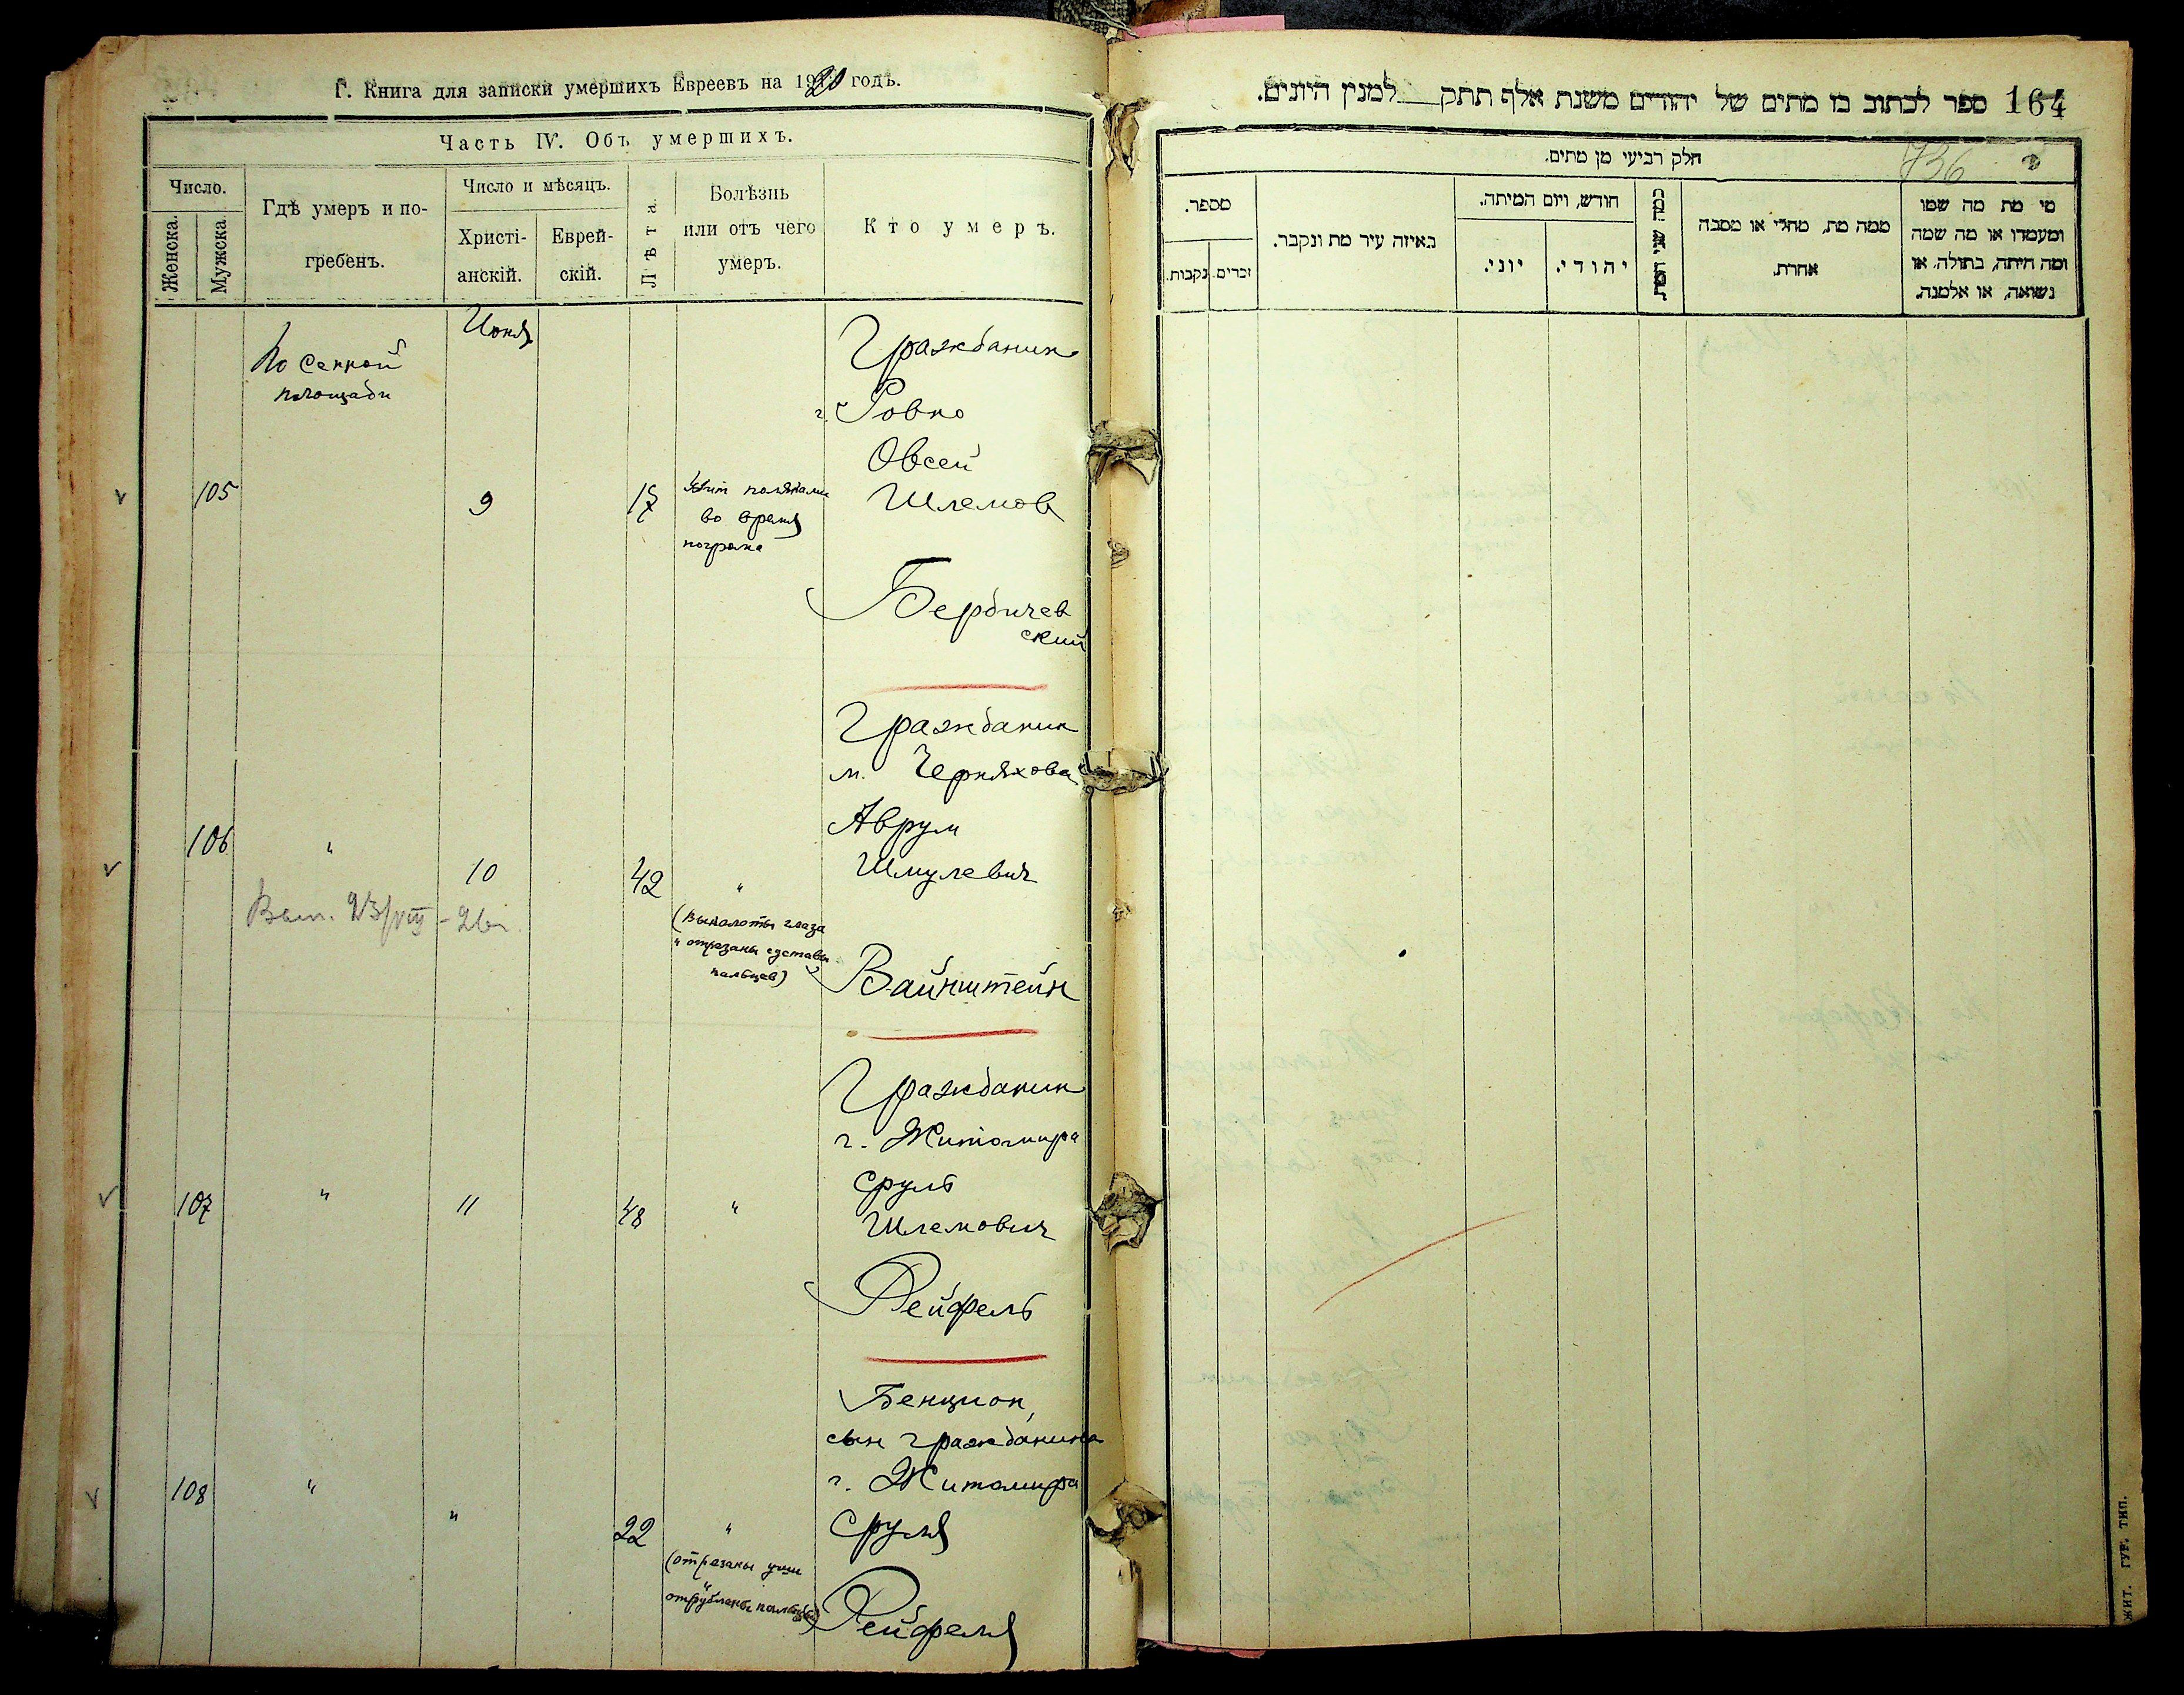 Г. Книга для записки умершихъ Евреевъ на 1920 годъ.
Часть IV. Объ умершихъ.
Число.
Женска.
Мужска.
Гдѣ умеръ и по-
гребенъ.
Число и мѣсяцъ.
Христі-
анскій.
Еврей-
скій.
Лѣта.
Болѣзнь
или отъ чего
умеръ.
Кто умеръ.
По Сенной
площади
Июня
105
9
17
Убит поляками
во время
погрома
Гражданин
г. Ровно
Овсей
Шлемов
Бердичев
ский
106
"
10
42
"
(выколоты глаза
и отрезаны суставы
пальцев)
Гражданин
м. Черняхова
Аврум
Шмулевич
Вайнштейн
Вып. 23/VIII - 26 г.
107
"
11
48
"
Гражданин
г. Житомира
Сруль
Шлемович
Рейфель
108
"
"
22
"
(отрезаны уши
и
отрублены пальцы)
Бенцион,
сын гражданина
г. Житомира
Сруля
Рейфеля
164 ספר לכתוב בו מתים של יהודים משנת אלף תתק למנין היונים.
736
חלק רביעי מן מתים.
מי מת מה שמו
ומעמדו או מה שמה
ומה היתה, בתולה, או
נשואה, או אלמנה.
ממה מת, מחלי או מסבה
אחרת.
כמה שני המת
חודש, ויום המיתה.
יהודי.
יוני.
באיזה עיר מת ונקבר.
מספר.
זכרים.
נקבות.
ЖИТ. ГУБ. ТИП.